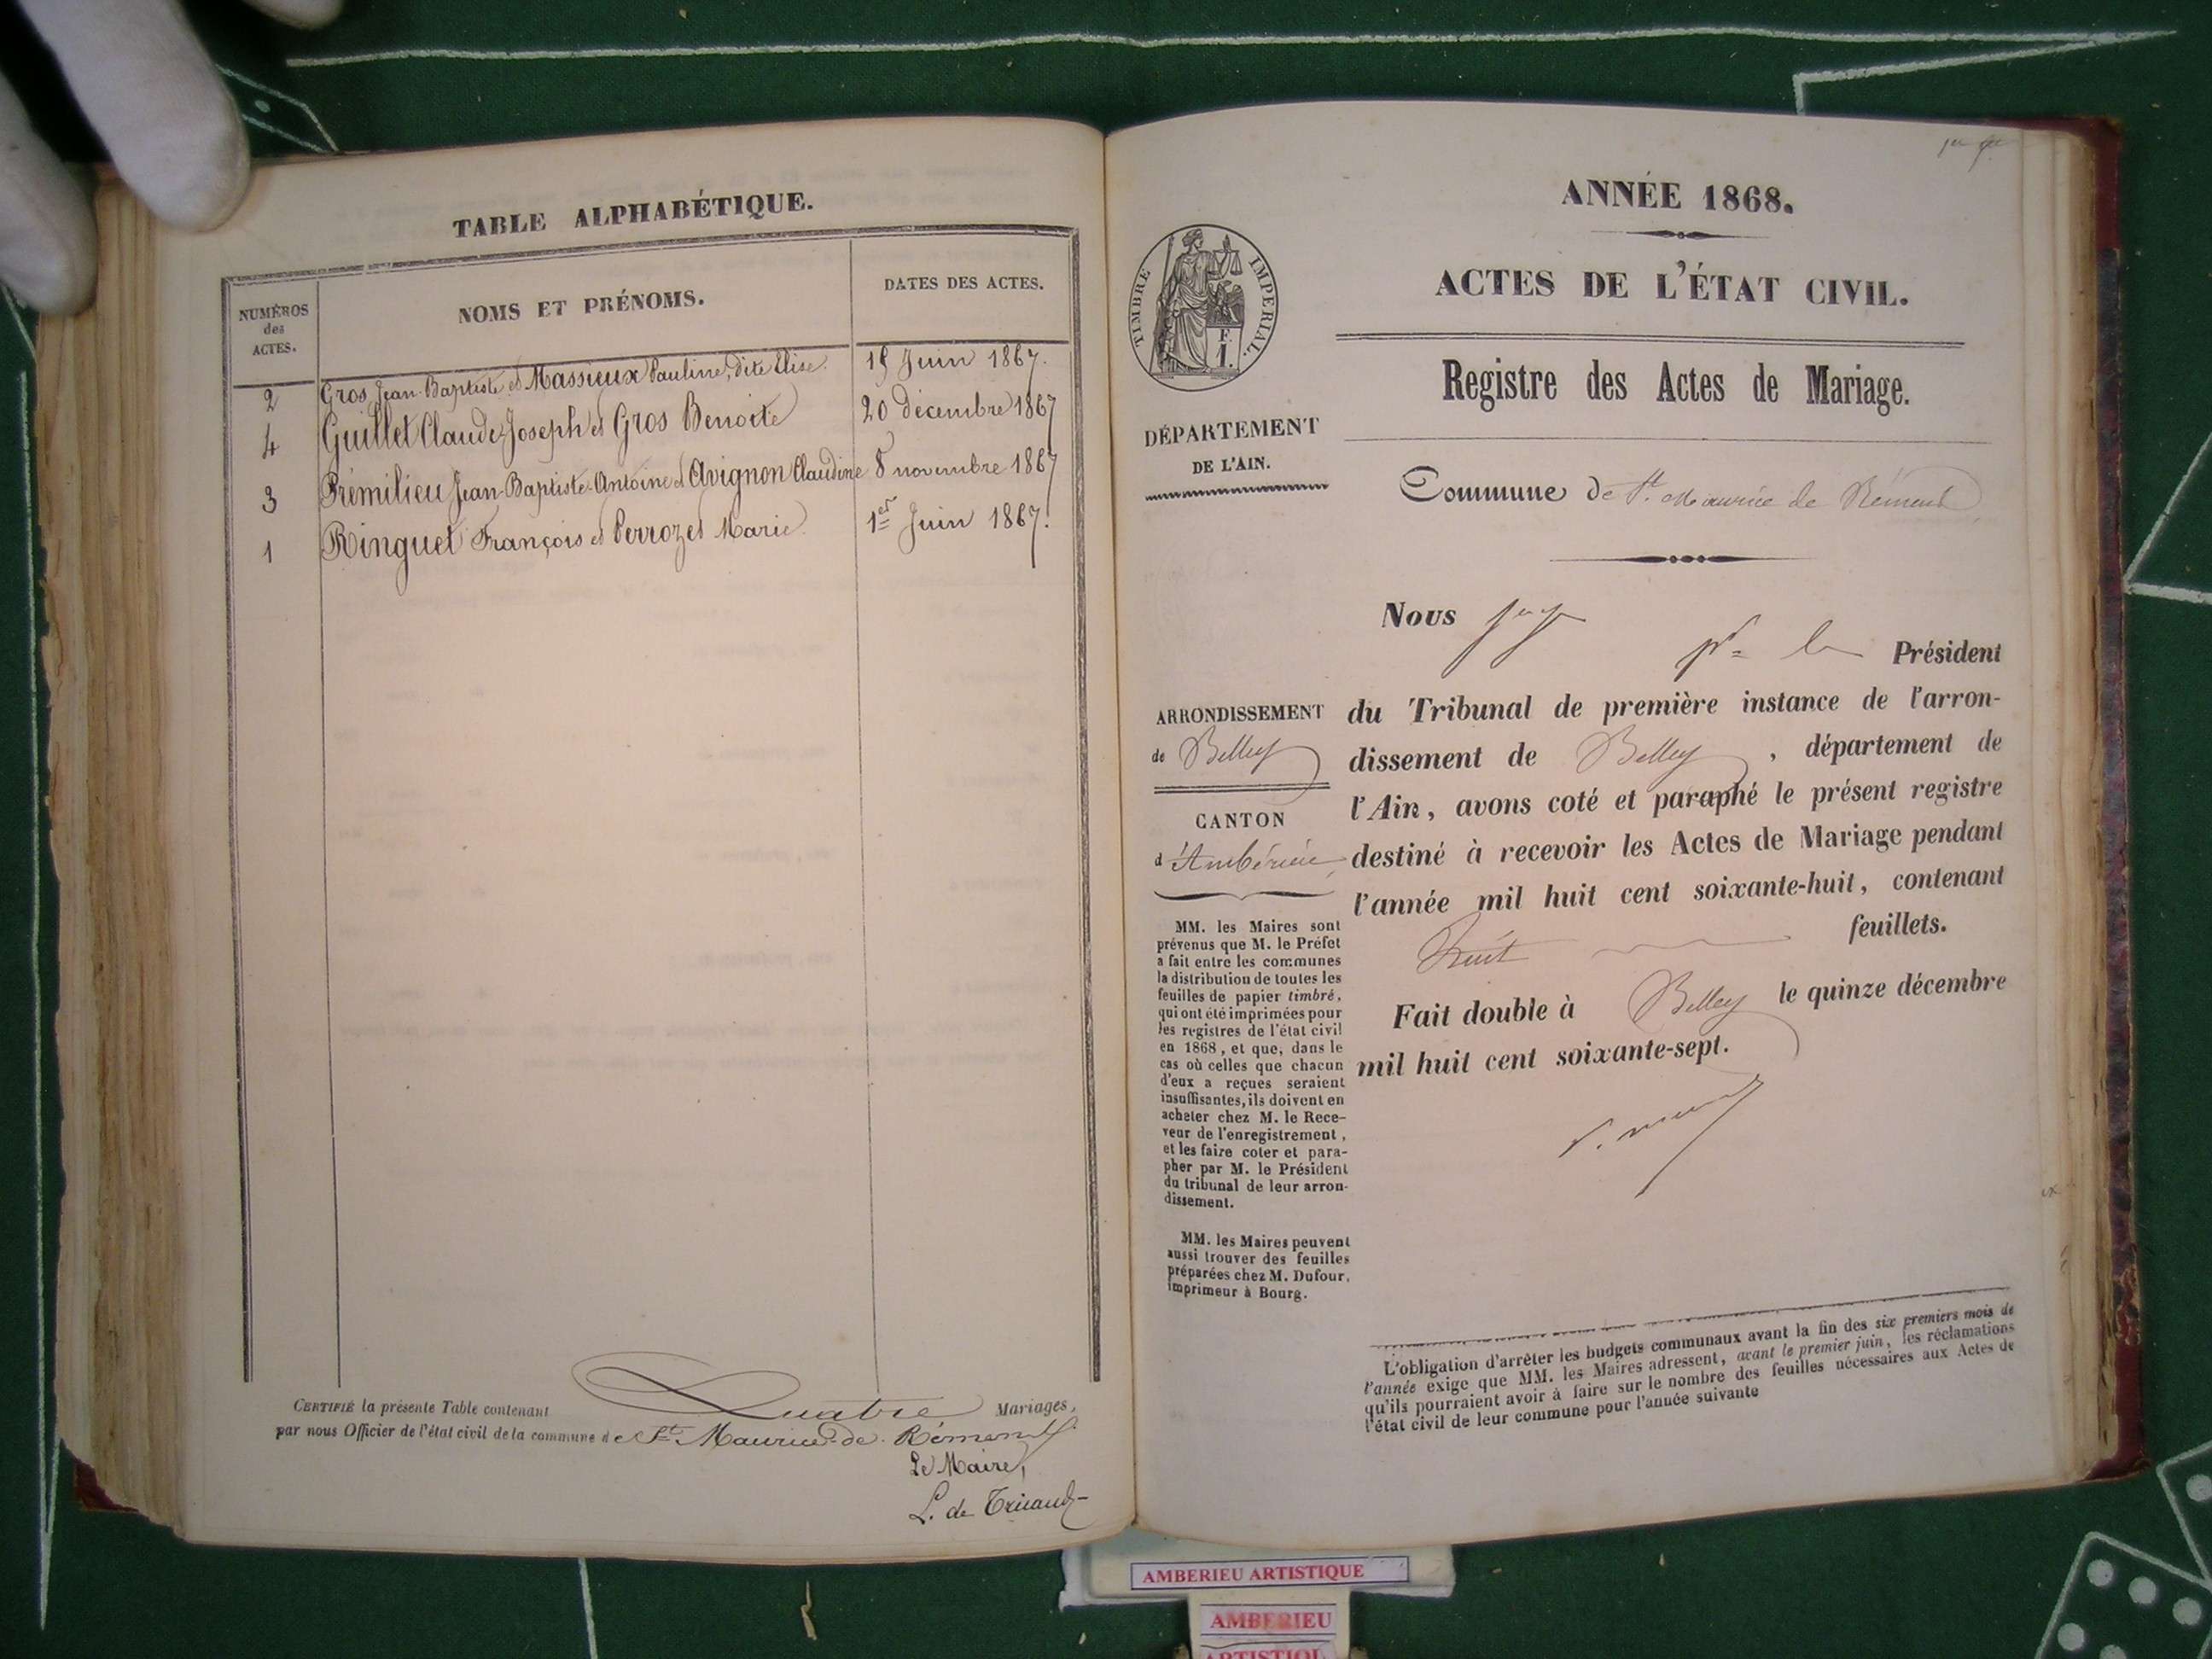 TABLE ALPHABÉTIQUE.
NUMÉROS
des
ACTES.
NOMS ET PRÉNOMS.
DATES DES ACTES.
2 Gros Jean-Baptiste et Massieux Pauline, dite Elise. 15 Juin 1867.
4 Guillet Claude-Joseph et Gros Benoite 20 décembre 1867
3 Prémilieu Jean-Baptiste-Antoine et Avignon Claudine 8 novembre 1867
1 Ringuet François et Perrozet Marie. 1er Juin 1867.
CERTIFIÉ la présente Table contenant Quatre Mariages,
par nous Officier de l'état civil de la commune de St. Maurice-de-Rémens.
Le Maire,
L. de Tricaud
ANNÉE 1868.
ACTES DE L'ÉTAT CIVIL.
TIMBRE IMPERIAL.
F.
1.
Registre des Actes de Mariage.
DÉPARTEMENT
DE L'AIN.
Commune de St. Maurice de Rémens
Nous juge
pr. le Président
ARRONDISSEMENT
de Belley
CANTON
d'Ambérieu
du Tribunal de première instance de l'arron-
dissement de Belley, département de
l'Ain, avons coté et paraphé le présent registre
destiné à recevoir les Actes de Mariage pendant
l'année mil huit cent soixante-huit, contenant
huit feuillets.
Fait double à Belley le quinze décembre
mil huit cent soixante-sept.
MM. les Maires sont
prévenus que M. le Préfet
a fait entre les communes
la distribution de toutes les
feuilles de papier timbré,
qui ont été imprimées pour
les registres de l'état civil
en 1868, et que, dans le
cas où celles que chacun
d'eux a reçues seraient
insuffisantes, ils doivent en
acheter chez M. le Rece-
veur de l'enregistrement,
et les faire coter et para-
pher par M. le Président
du tribunal de leur arron-
dissement.
MM. les Maires peuvent
aussi trouver des feuilles
préparées chez M. Dufour,
imprimeur à Bourg.
L'obligation d'arrêter les budgets communaux avant la fin des six premiers mois de
l'année exige que MM. les Maires adressent, avant le premier juin, les réclamations
qu'ils pourraient avoir à faire sur le nombre des feuilles nécessaires aux Actes de
l'état civil de leur commune pour l'année suivante
AMBERIEU ARTISTIQUE
AMBERIEU
ARTISTIQU